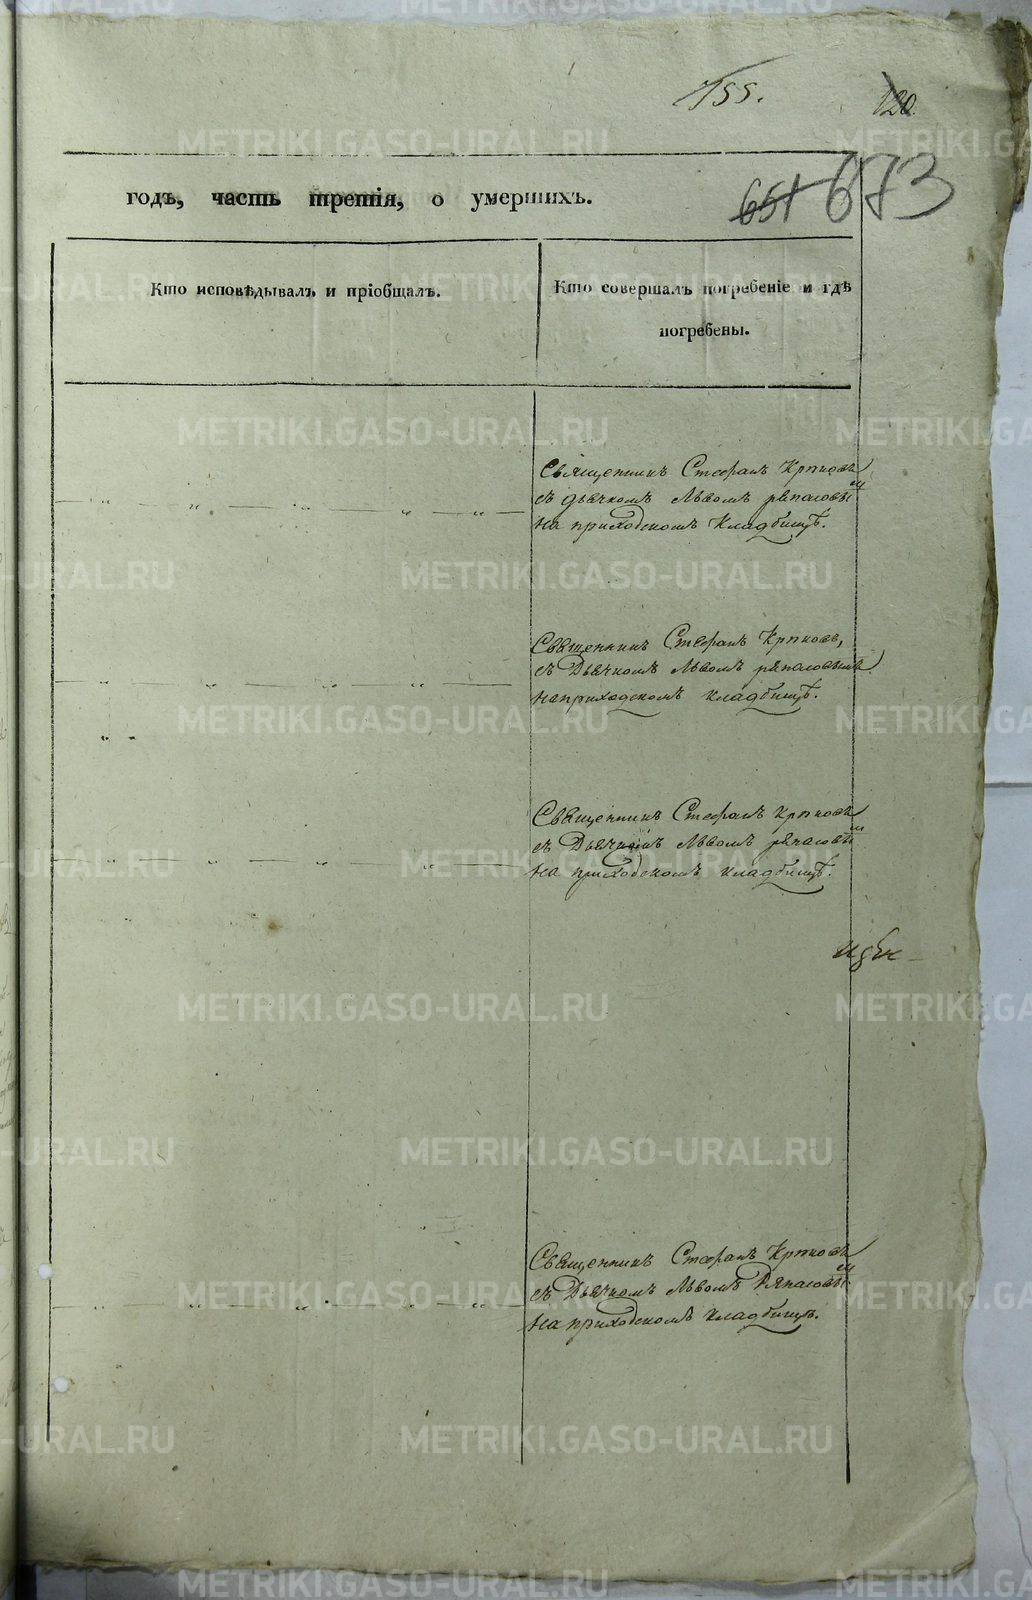 155.
120.
651 673
годъ, часть третія, о умершихъ.
Кто исповѣдывалъ и пріобщалъ.
Кто совершалъ погребеніе и гдѣ
погребены.
Священникъ Стефанъ Крюковъ
съ дьячкомъ Львомъ
на приходскомъ кладбищѣ.
Священникъ Стефанъ Крюковъ,
съ Дьячкомъ Львомъ
на приходскомъ кладбищѣ.
Священникъ Стефанъ Крюковъ
съ Дьячкомъ Львомъ
на приходскомъ кладбищѣ.
Священникъ Стефанъ Крюковъ
съ Дьячкомъ Львомъ
на приходскомъ кладбищѣ.
METRIKI.GASO-URAL.RU